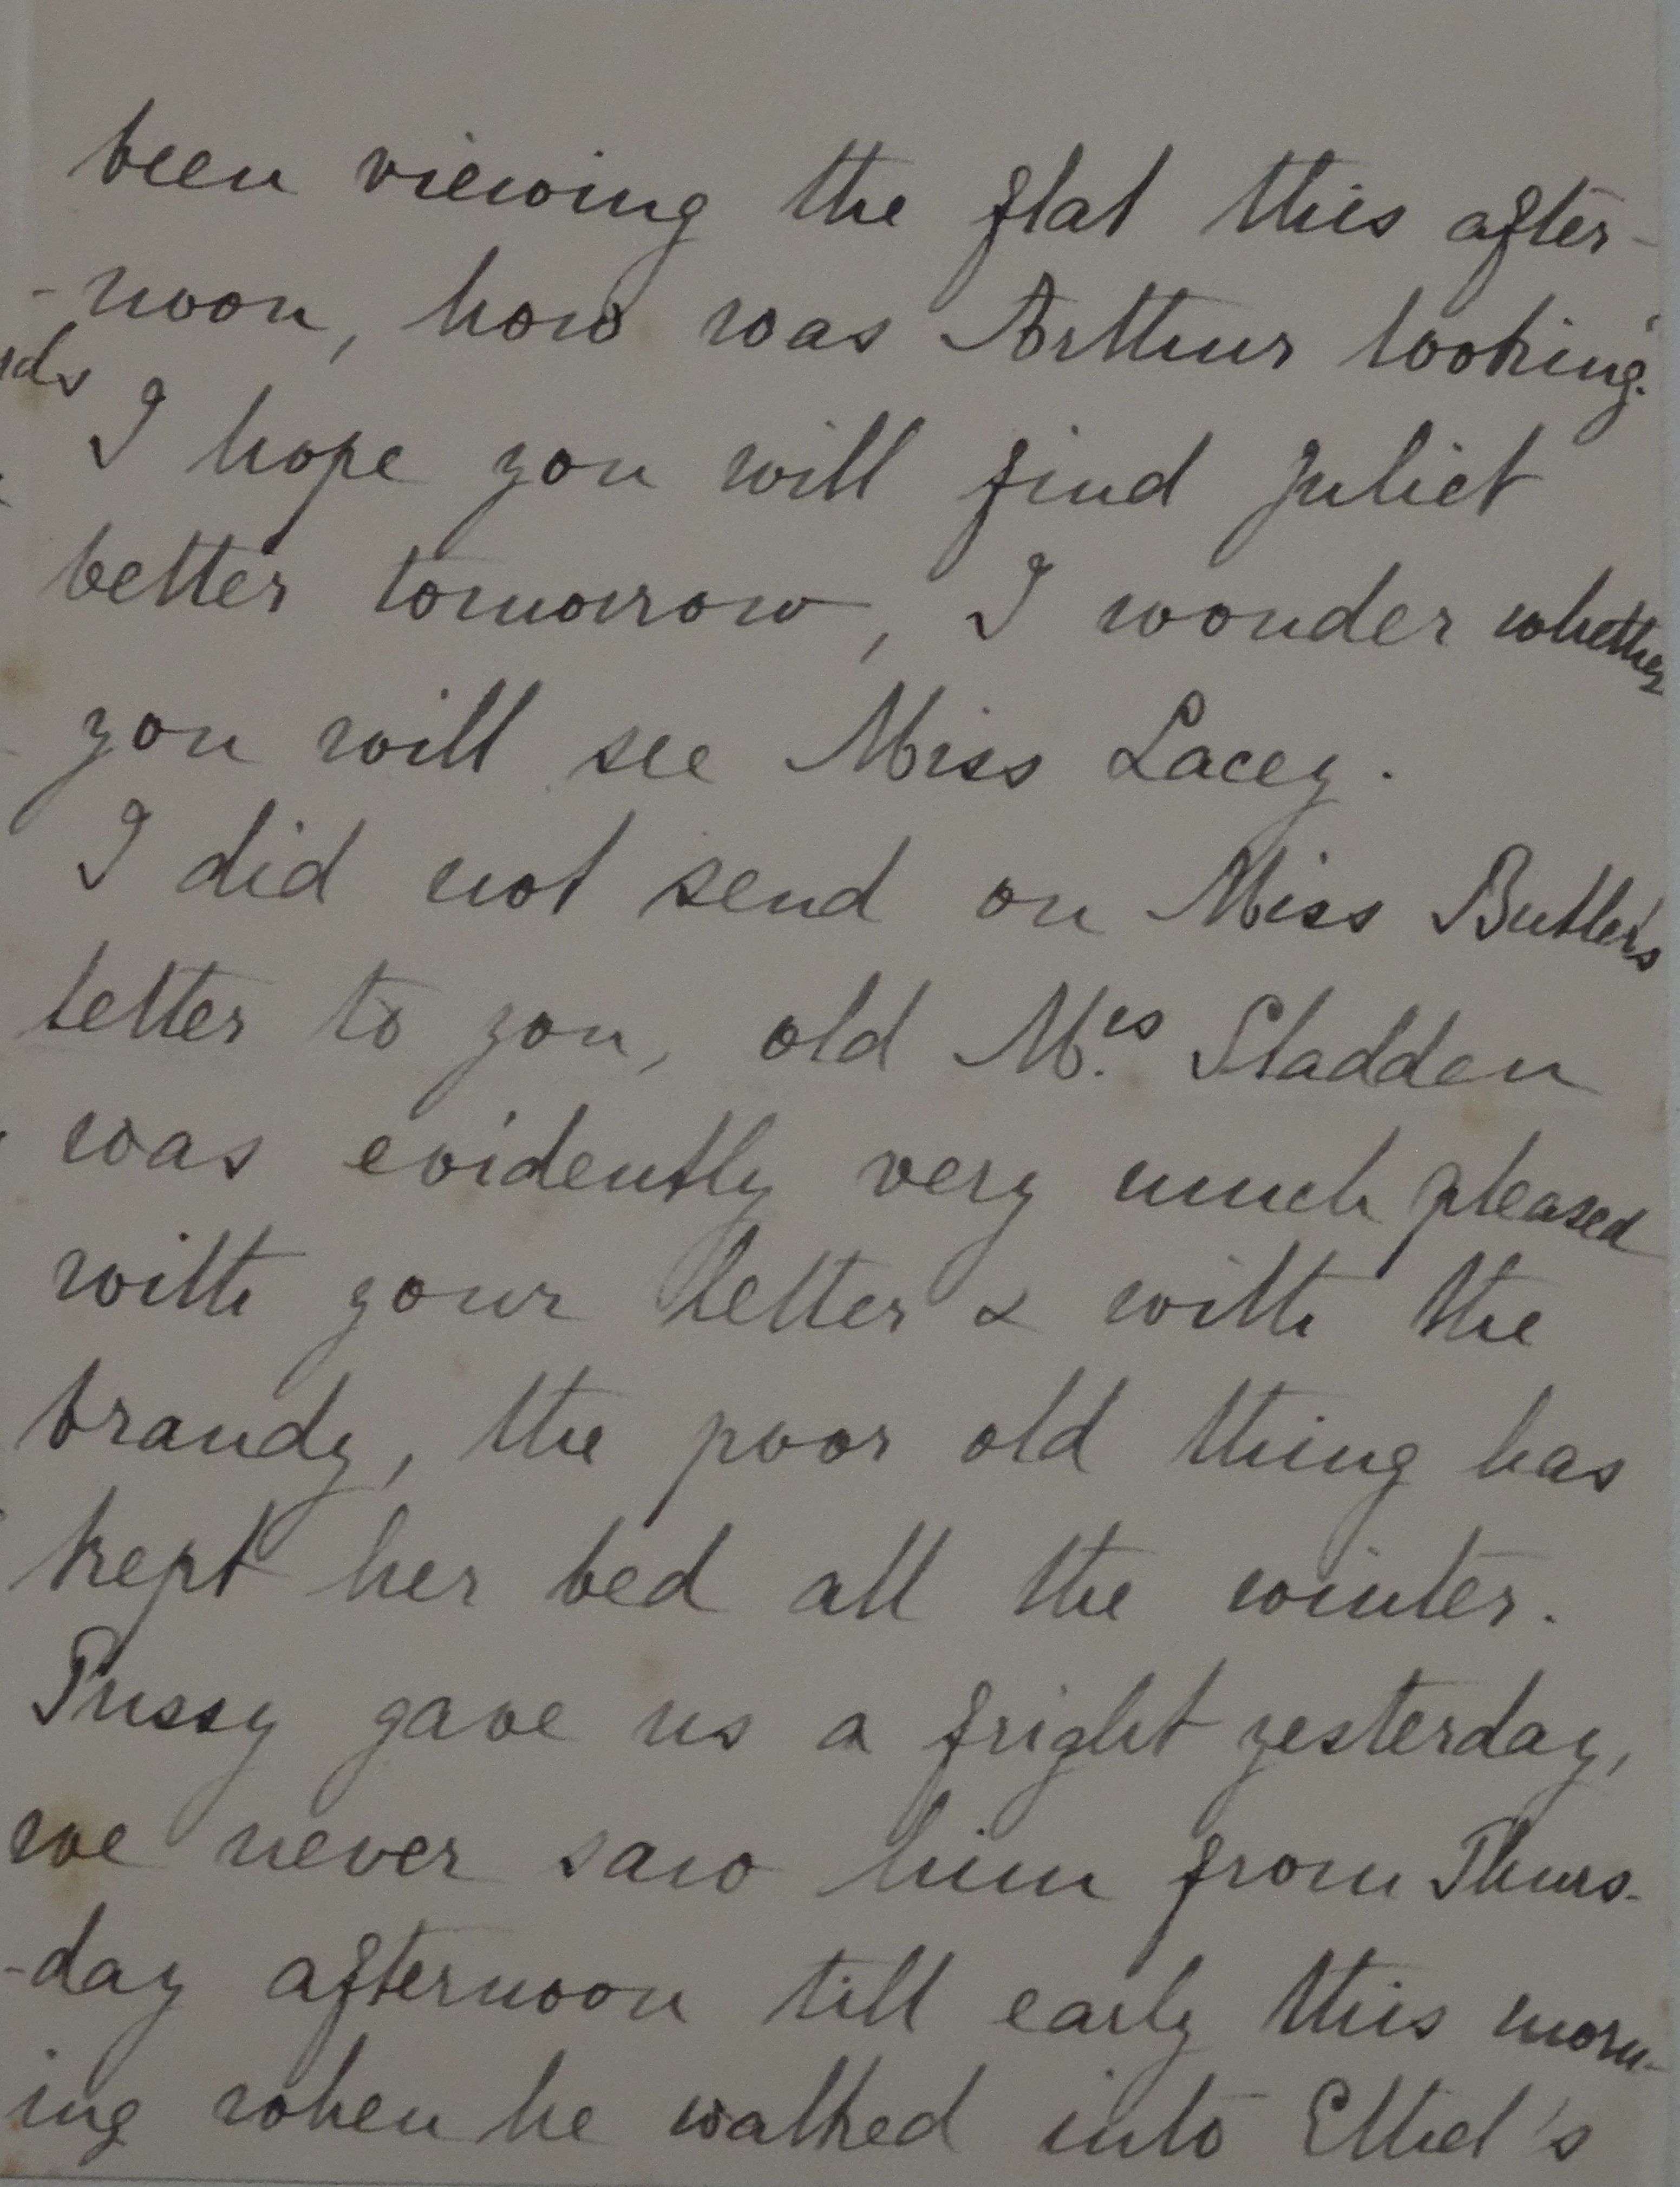 been viewing the flat this after-
-noon, how was Arthur looking.
I hope you will find Juliet
better tomorrow, I wonder whether
you will see Miss Lacey.
I did not send on Miss Butler's
letter to you, old Mrs. Sladden
was evidently very much pleased
with your letter & with the
brandy, the poor old thing has
kept her bed all the winter.
Pussy gave us a fright yesterday,
we never saw him from Thurs-
-day afternoon till early this morn-
ing when he walked into Ethel's